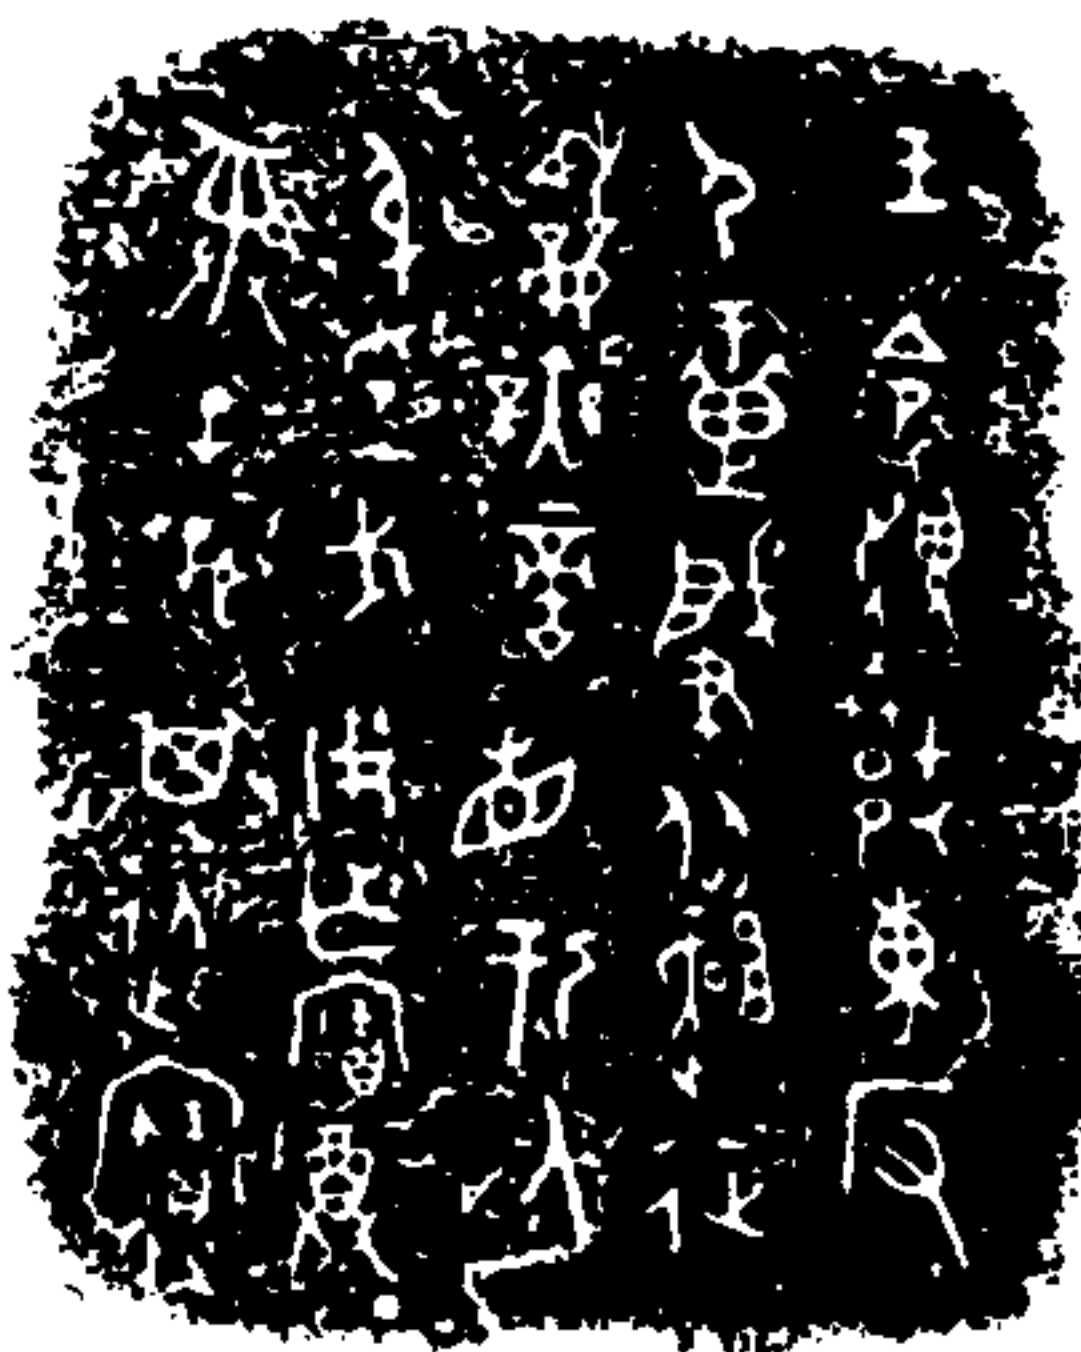 王令趞捷東反
尸疐肇從趞征
攻龠無啻省于人
身孚戈用乍寶尊
彝子子孫其永寶